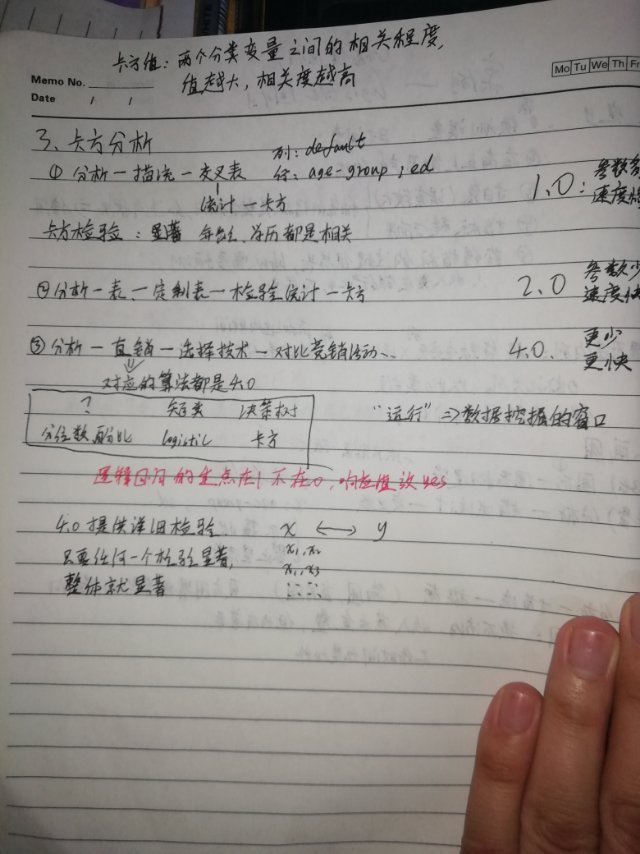 卡方值：两个分类变量之间的相关程度，
值越大，相关度越高
Memo No.
Mo Tu We Th Fr
Date / /
3、卡方分析
① 分析—描统—交叉表
列：default
行：age-group，ed
统计—卡方
1.0：参数多
速度慢
卡方检验：显著 年龄、学历都是相关
②分析—表—定制表—检验统计—卡方
2.0 参数少
速度快
③分析—直销—选择技术—对比营销活动..
4.0. 更少
更快
对应的算法都是4.0
? 决策树
分位数,百分比 logistic 卡方
"运行"⇒数据挖掘的窗口
逻辑回归的重点在1不在0，响应值设yes
4.0提供详细检验 x ↔ y
只要任何一个检验显著， x₁,x₂
x₁,x₃
整体就显著